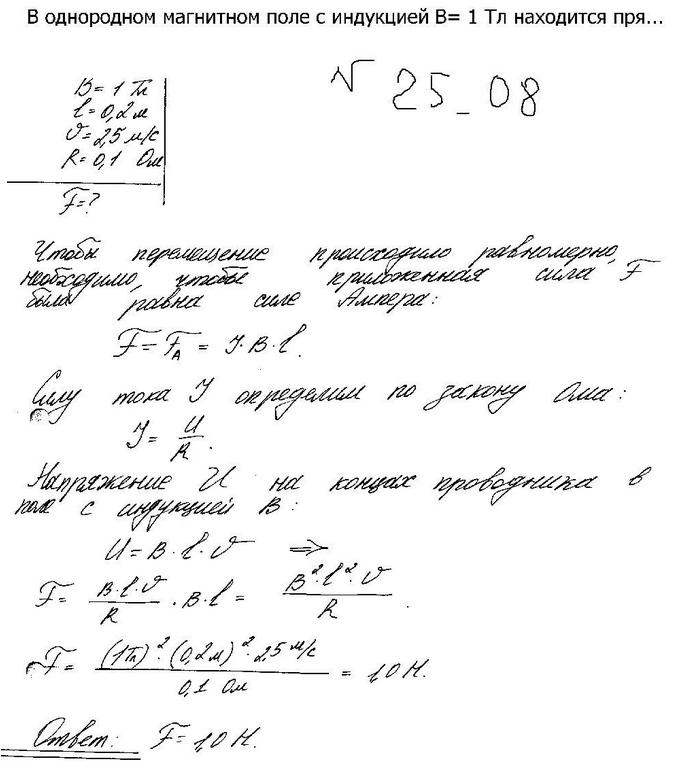 В однородном магнитном поле с индукцией В= 1 Тл находится пря...
№ 25_08
B = 1 Тл
l = 0,2 м
υ = 2,5 м/с
R = 0,1 Ом
F = ?
Чтобы перемещение происходило равномерно,
необходимо, чтобы приложенная сила F
была равна силе Ампера:
F = F_A = I · B · l.
Силу тока I определим по закону Ома:
I = U/R.
Напряжение U на концах проводника в
поле с индукцией B:
U = B · l · υ ⇒
F = B·l·υ/R · B·l = B²·l²·υ/R.
F = (1Тл)²·(0,2м)²·2,5 м/с / 0,1 Ом = 1,0 Н.
Ответ: F = 1,0 Н.